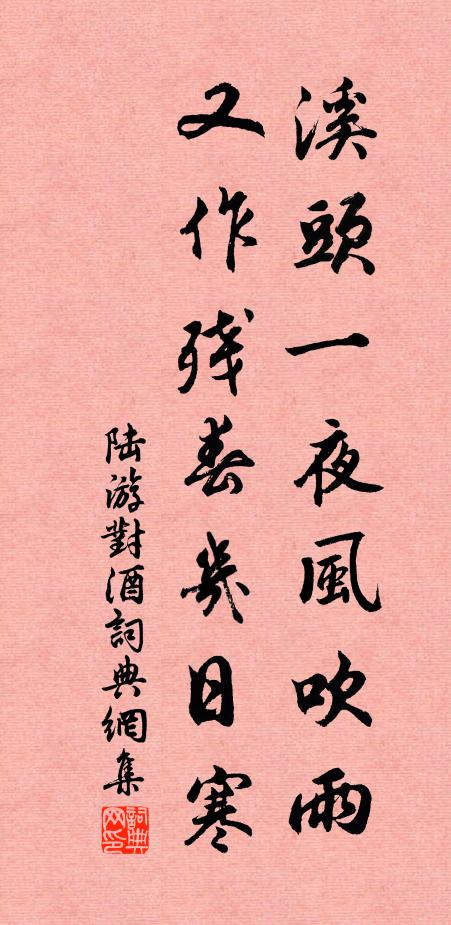 溪頭一夜風吹雨
又作殘春幾日寒
陆游對酒詞典網集
詞典网印